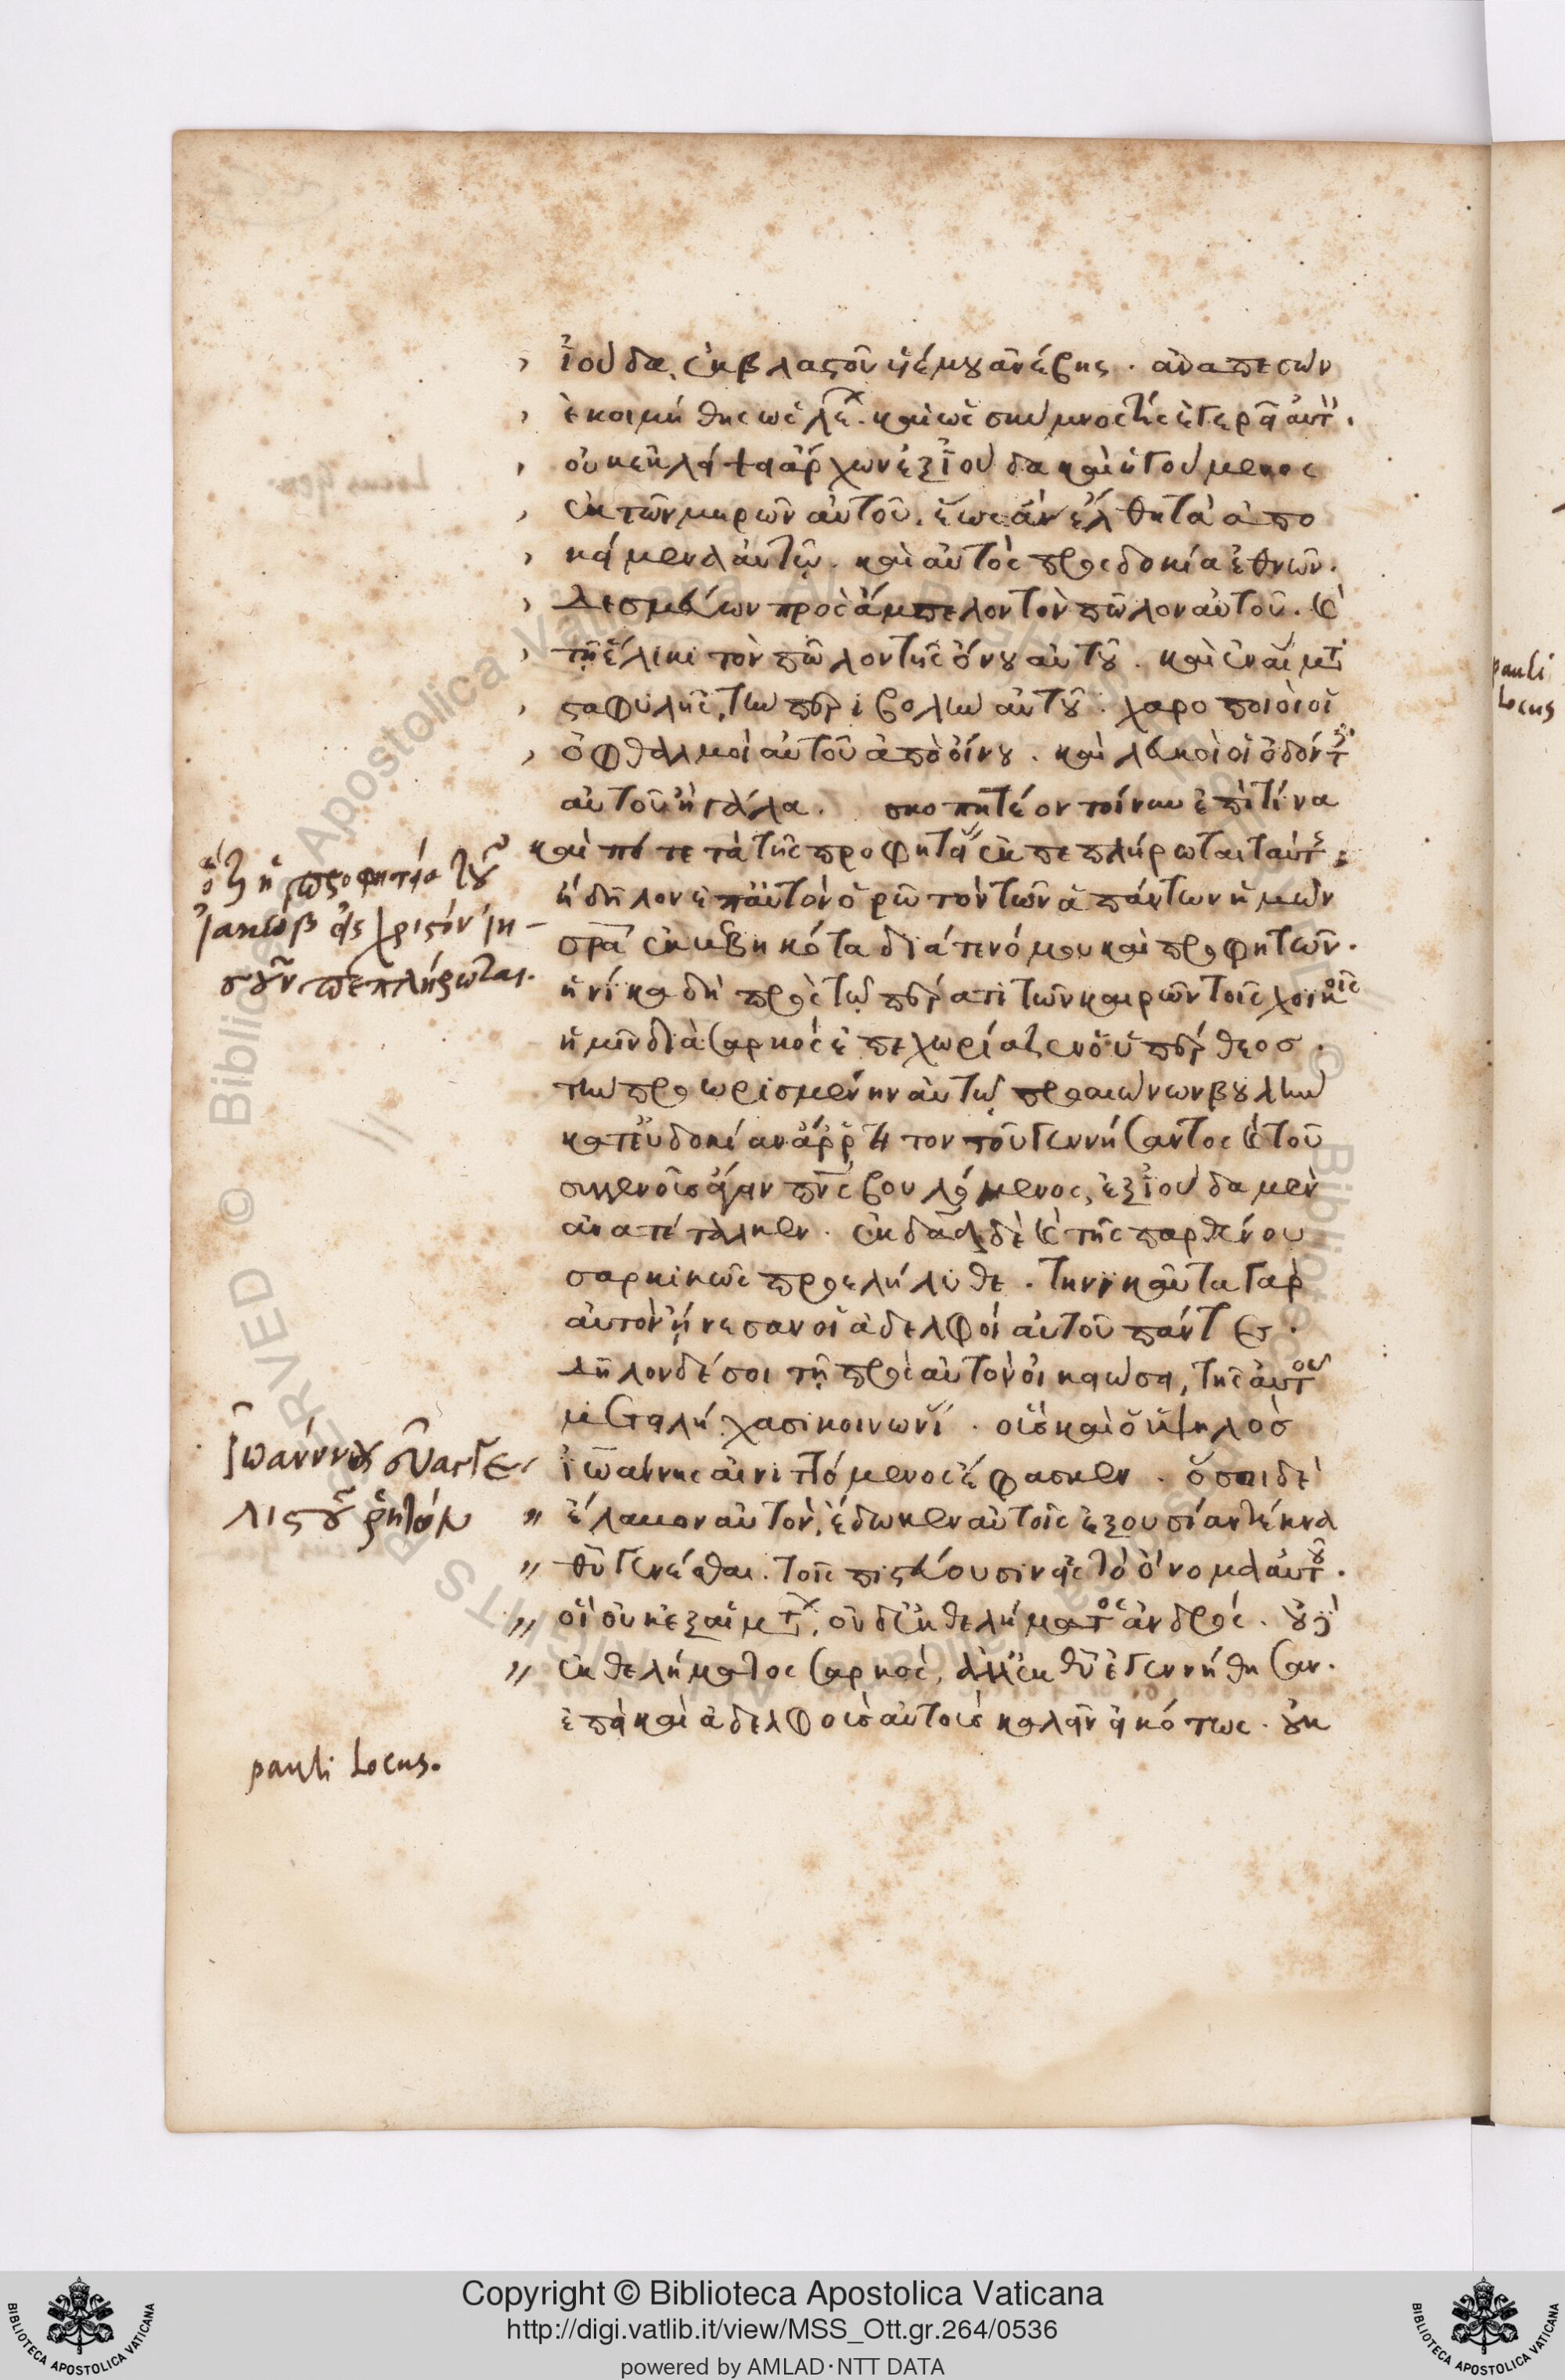 ἰούδα, ἐκ βλαστοῦ υἱέ μου ἀνέβης. ἀναπεσὼν
ἐκοιμήθης ὡς λέ. καὶ ὡς σκύμνος τίς ἐγερεῖ αὐτ.
οὐκ ἐκλείψει ἄρχων ἐξ ἰούδα καὶ ἡγούμενος
ἐκ τῶν μηρῶν αὐτοῦ. ἕως ἂν ἔλθη τὰ ἀπο
κείμενα αὐτῷ. καὶ αὐτὸς προσδοκία ἐθνῶν.
δεσμεύων πρὸς ἄμπελον τὸν πῶλον αὐτοῦ. καὶ
τῇ ἕλικι τὸν πῶλον τῆς ὄνου αὐτοῦ. καὶ ἐν αἵματι
σταφυλῆς, τὴν περιβολὴν αὐτοῦ. χαροποιοὶ οἱ
ὀφθαλμοὶ αὐτοῦ ἀπὸ οἴνου. καὶ λευκοὶ οἱ ὀδόντες
αὐτοῦ ἢ γάλα. σκοπητέον τοίνυν ἐπὶ τίνα
καὶ πότε τὰ τῆς προφητείας ἐκπεπλήρωται ταύτης;
ἢ δῆλον ἐπ' αὐτὸν ὁρῶ τὸν τῶν ἁπάντων ἡμῶν
σρα ἐκβεβηκότα διά τε νόμου καὶ προφητῶν.
ἡνίκα δὴ πρὸς τῷ πέρατι τῶν καιρῶν τοῖς χοϊκοῖς
ἡμῖν διὰ σαρκὸς ἐπεχωρίαζεν ὁ ὑπέρθεος.
τὴν προωρισμένην αὐτῷ πρὸ αἰώνων βουλὴν
κατ' εὐδοκίαν ἄρρητον τοῦ γεννήσαντος καὶ τοῦ
συγγενοῦς βουλόμενος, ἐξ ἰούδα μὲν
ἀνατέταλκεν. ἐκ δαδ δὲ καὶ τῆς παρθένου
σαρκικῶς προελήλυθε. τηνικαῦτα γὰρ
αὐτὸν ᾔνεσαν οἱ ἀδελφοὶ αὐτοῦ πάντες.
δῆλον δέ σοι τῇ πρὸς αὐτὸν οἰκειώσει, τῆς αὐτοῦ
μετειλήχασι κοινωνίας. οἷς καὶ ὁ ὑψηλὸς
ἰωάννης αἰνιττόμενος ἔφασκεν. ὅσοι δὲ
ἔλαβον αὐτὸν, ἔδωκεν αὐτοῖς ἐξουσίαν τέκνα
θυ γενέσθαι. τοῖς πιστεύουσιν εἰς τὸ ὄνομα αὐτοῦ.
οἳ οὐκ ἐξ αἱμάτ, οὐδ' ἐκ θελήματος ἀνδρός. οὐδ'
ἐκ θελήματος σαρκὸς, ἀλλ' ἐκ θυ ἐγεννήθησαν.
ἐπεὶ καὶ ἀδελφοὺς αὐτοὺς καλεῖν εἰκότως. οὐκ
ὅτι ἡ προφητεία τοῦ
Ἰακώβ εἰς χριστόν Ἰη-
σοῦν πεπλήρωται.
Ἰωάννου εὐαγγε
λιστοῦ ῥητόν
pauli Locus.
pauli
Locus
Copyright © Biblioteca Apostolica Vaticana
http://digi.vatlib.it/view/MSS_Ott.gr.264/0536
powered by AMLAD·NTT DATA
BIBLIOTECA APOSTOLICA VATICANA
BIBLIOTECA APOSTOLICA VATICANA